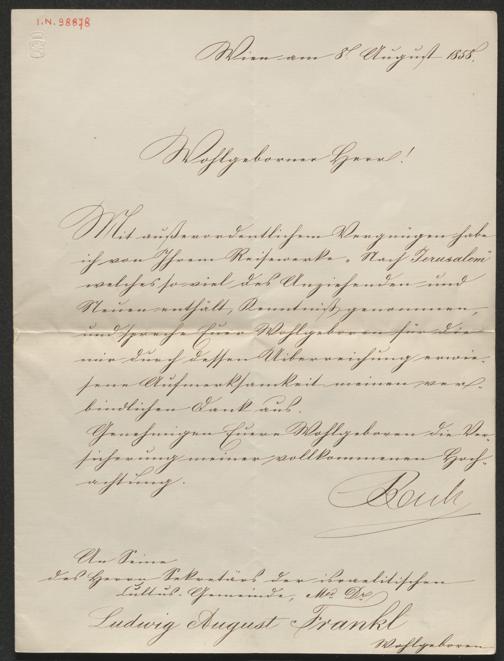 I.N. 98878
Wien am 8t. August 1858.
Wohlgeborner Herr!
Mit außerordentlichem Vergnügen habe
ich von Ihrem Reisewerke „Nach Jerusalem"
welches so viel des Anziehenden und
Neuen enthält, Kenntniß genommen,
und spreche Euer Wohlgeboren für die
mir durch dessen Uiberreichung erwie-
sene Aufmerksamkeit meinen ver-
bindlichen Dank aus.
Genehmigen Euere Wohlgeboren die Ver-
sicherung meiner vollkommenen Hoch-
achtung.
An Seine
des Herrn Sekretärs der israelitischen
Cultus-Gemeinde, Med. Dr.
Ludwig August Frankl
Wohlgeboren